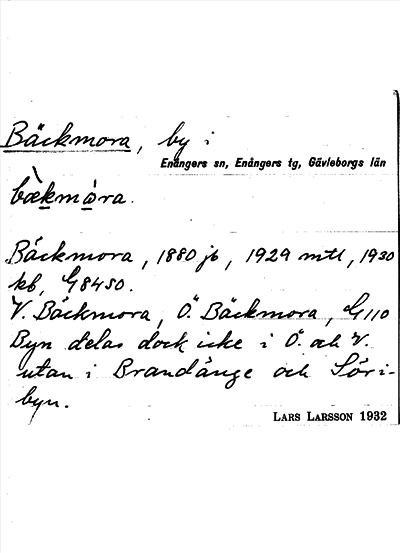 Bäckmora, by i
Enångers sn, Enångers tg, Gävleborgs län
bækmòra.
Bäckmora, 1880 jb, 1929 mtl, 1930
kb, G8450.
V. Bäckmora, Ö. Bäckmora, G110
Byn delas dock icke i Ö. och V.
utan i Brandänge och Söri-
byn.
LARS LARSSON 1932